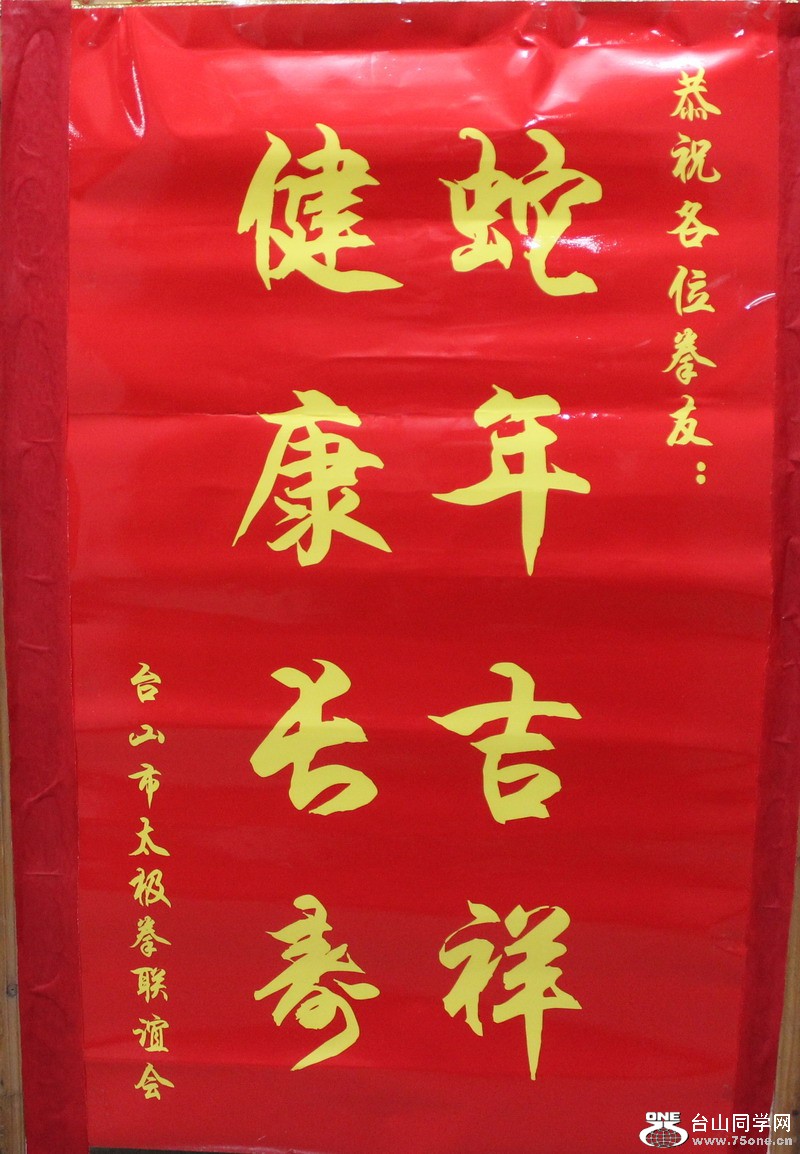 恭祝各位拳友：
蛇年吉祥
健康长寿
台山市太极拳联谊会
ONE
台山同学网
www.75one.cn